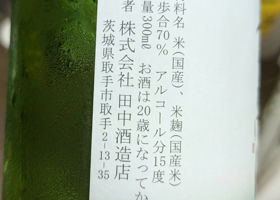 料名 米（国産）、米麹（国産米）
歩合70% アルコール分15度
量300ml お酒は20歳になってか
者 株式会社 田中酒造店
茨城県取手市取手2-13-35